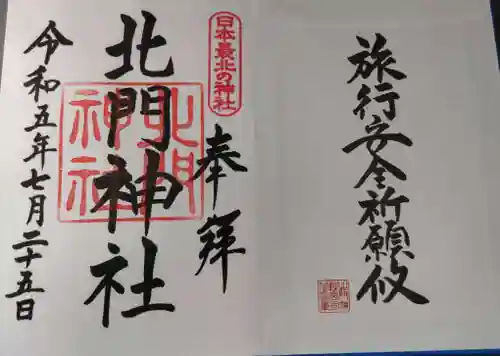 旅行安全祈願攸
日本最北の神社
奉拜
北門神社
北門
神社
令和五年七月二十五日